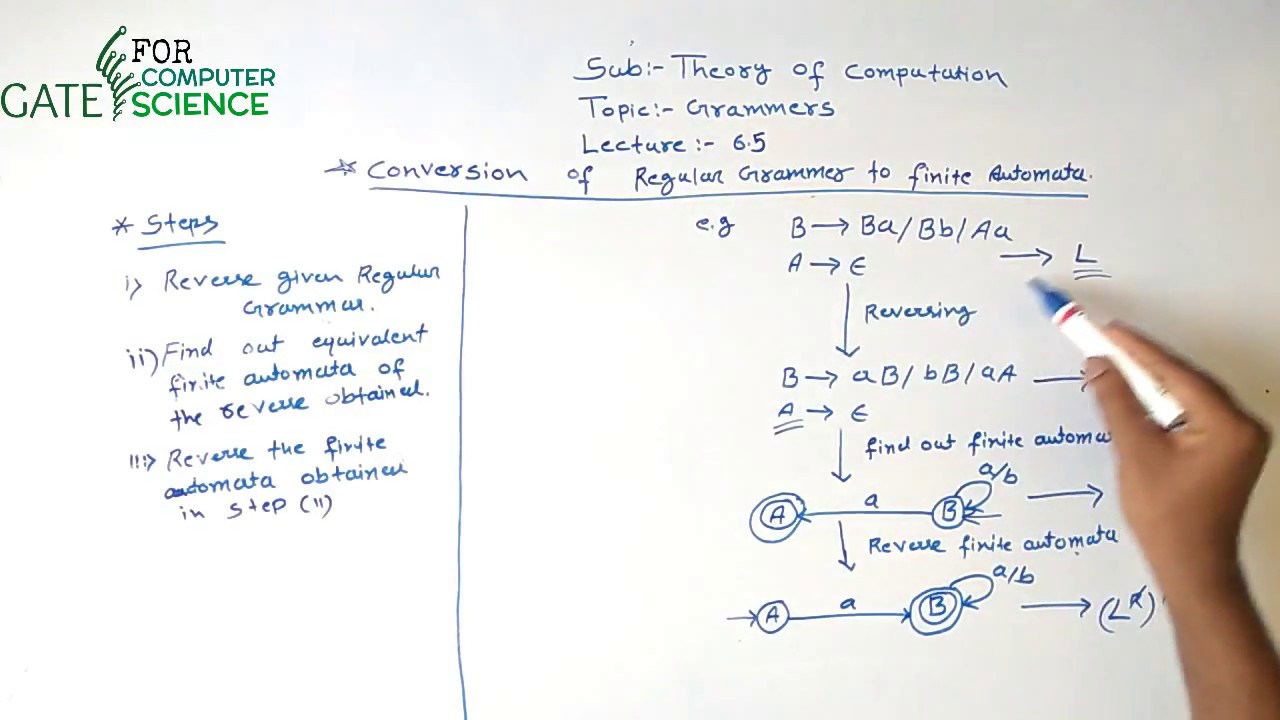 FOR
GATE COMPUTER
SCIENCE
Sub:- Theory of Computation
Topic:- Grammers
Lecture :- 6.5
* Conversion of Regular Grammer to finite Automata.
* Steps
i) Reverse given Regular
Grammar.
ii) Find out equivalent
finite automata of
the reverse obtained.
iii) Reverse the finite
automata obtained
in step (ii)
e.g B → Ba/Bb/Aa
A → ∈
→ L
Reversing
B → aB/bB/aA →
A → ∈
find out finite automa
a/b
A a B →
Reverse finite automata
a/b
→ A a B → (L^R)